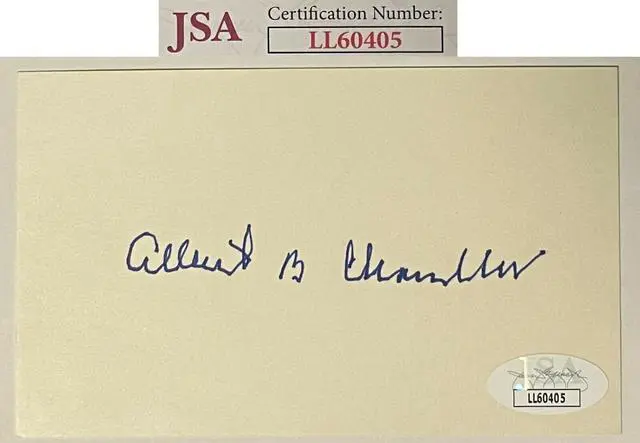 JSA Certification Number:
LL60405
Albert B Chandler
JSA
LL60405